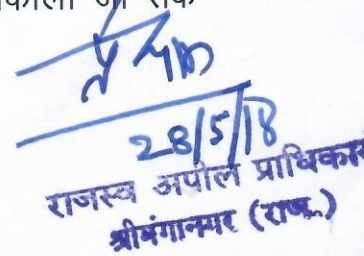 जा सके
28/5/18
राजस्व अपील प्राधिकारी
श्रीगंगानगर (राज.)